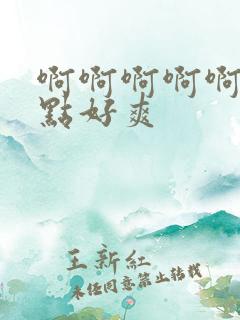 啊啊啊啊啊
點好爽
王新紅
未经同意禁止转载